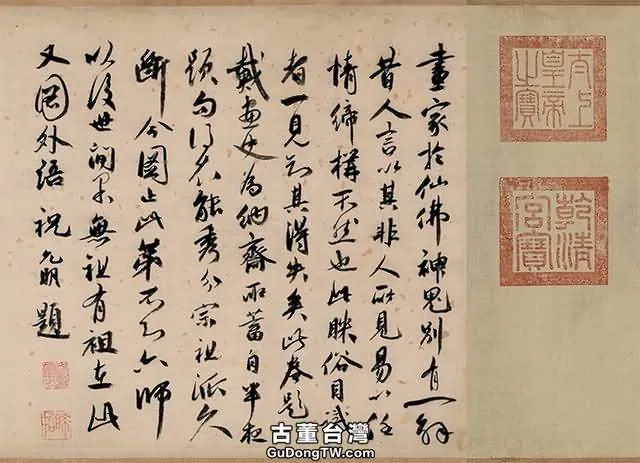 太上
皇帝
之寶
乾清
宮寶
畫家於仙佛神鬼別有一解
昔人言以其非人所見易以任
情締構不然也此眯俗目
者一見其得失矣此卷題
戴畫為納齋所蓄自半
題句不能秀分宗祖派久
斷今圖止此第不知六師
以後世間果無祖有祖在此
又圖外語祝允明題
古董台灣
GuDongTW.com